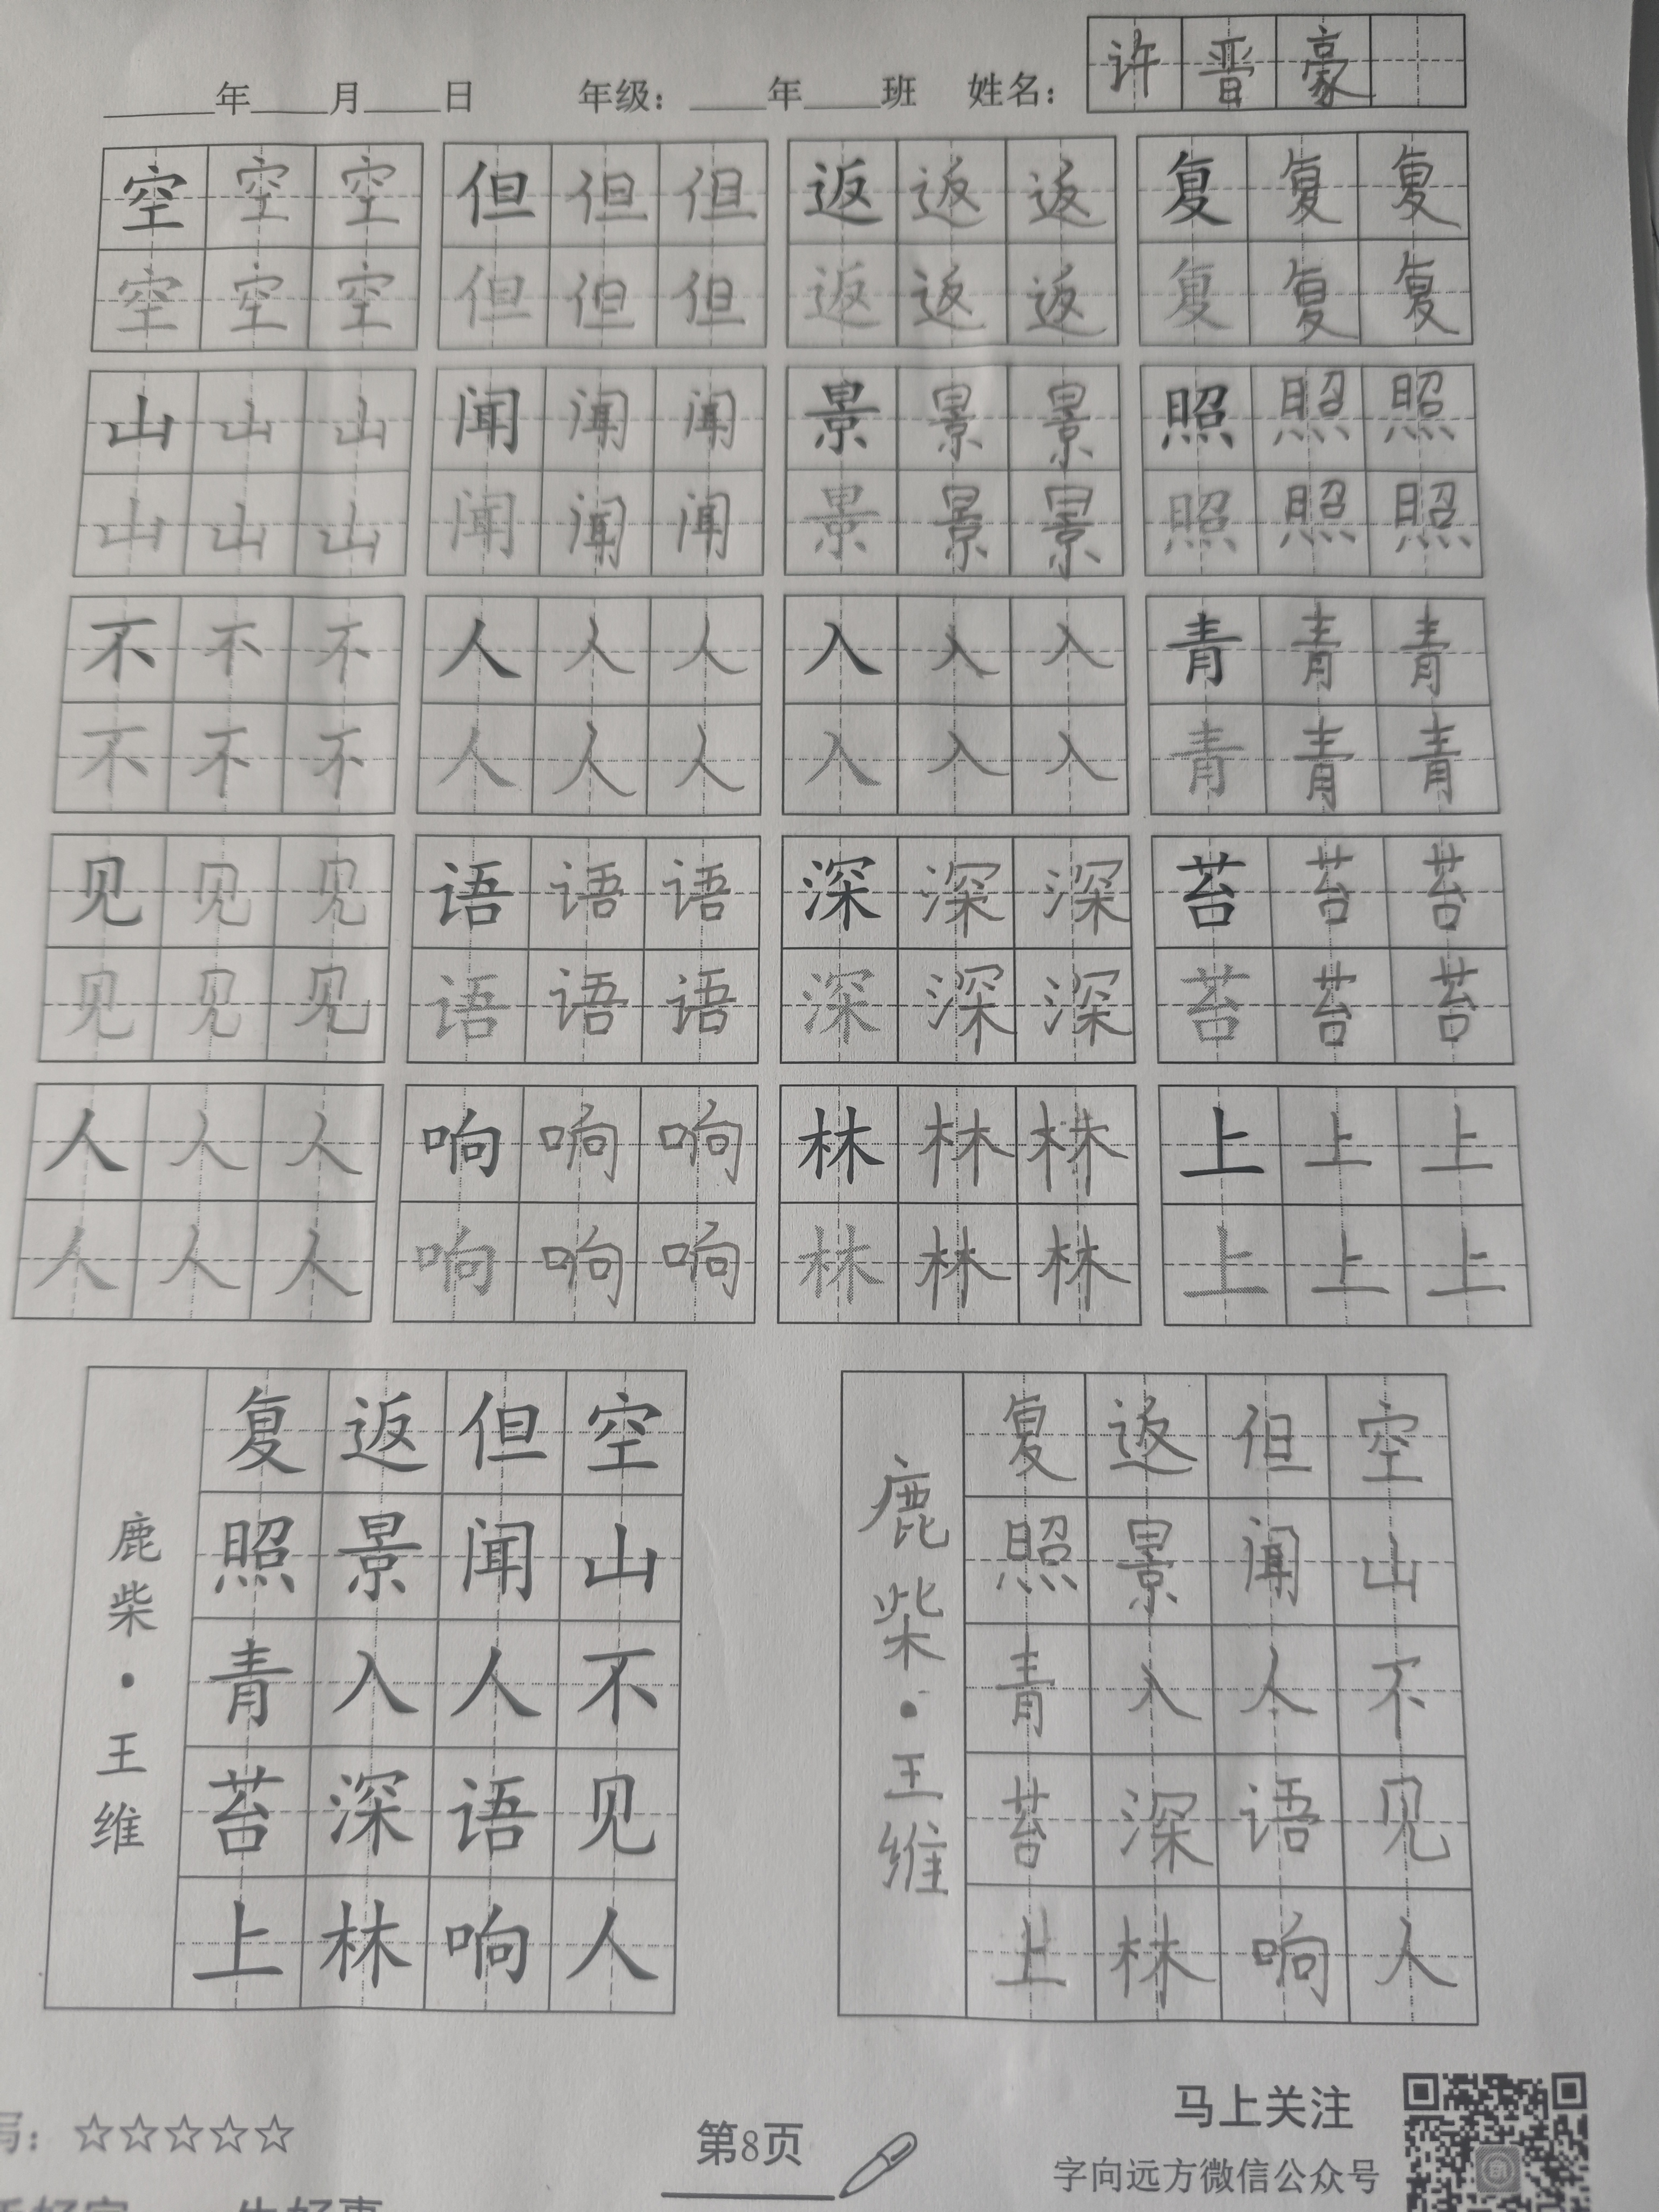 ____年____月____日 年级：____年____班 姓名：许晋豪
空空空 但但但 返返返 复复复
空空空 但但但 返返返 复复复
山山山 闻闻闻 景景景 照照照
山山山 闻闻闻 景景景 照照照
不不不 人人人 入入入 青青青
不不不 人人人 入入入 青青青
见见见 语语语 深深深 苔苔苔
见见见 语语语 深深深 苔苔苔
人人人 响响响 林林林 上上上
人人人 响响响 林林林 上上上
空山不见人
但闻人语响
返景入深林
复照青苔上
鹿柴·王维
空山不见人
但闻人语响
返景入深林
复照青苔上
鹿柴·王维
写：☆☆☆☆☆
第8页
马上关注
字向远方微信公众号